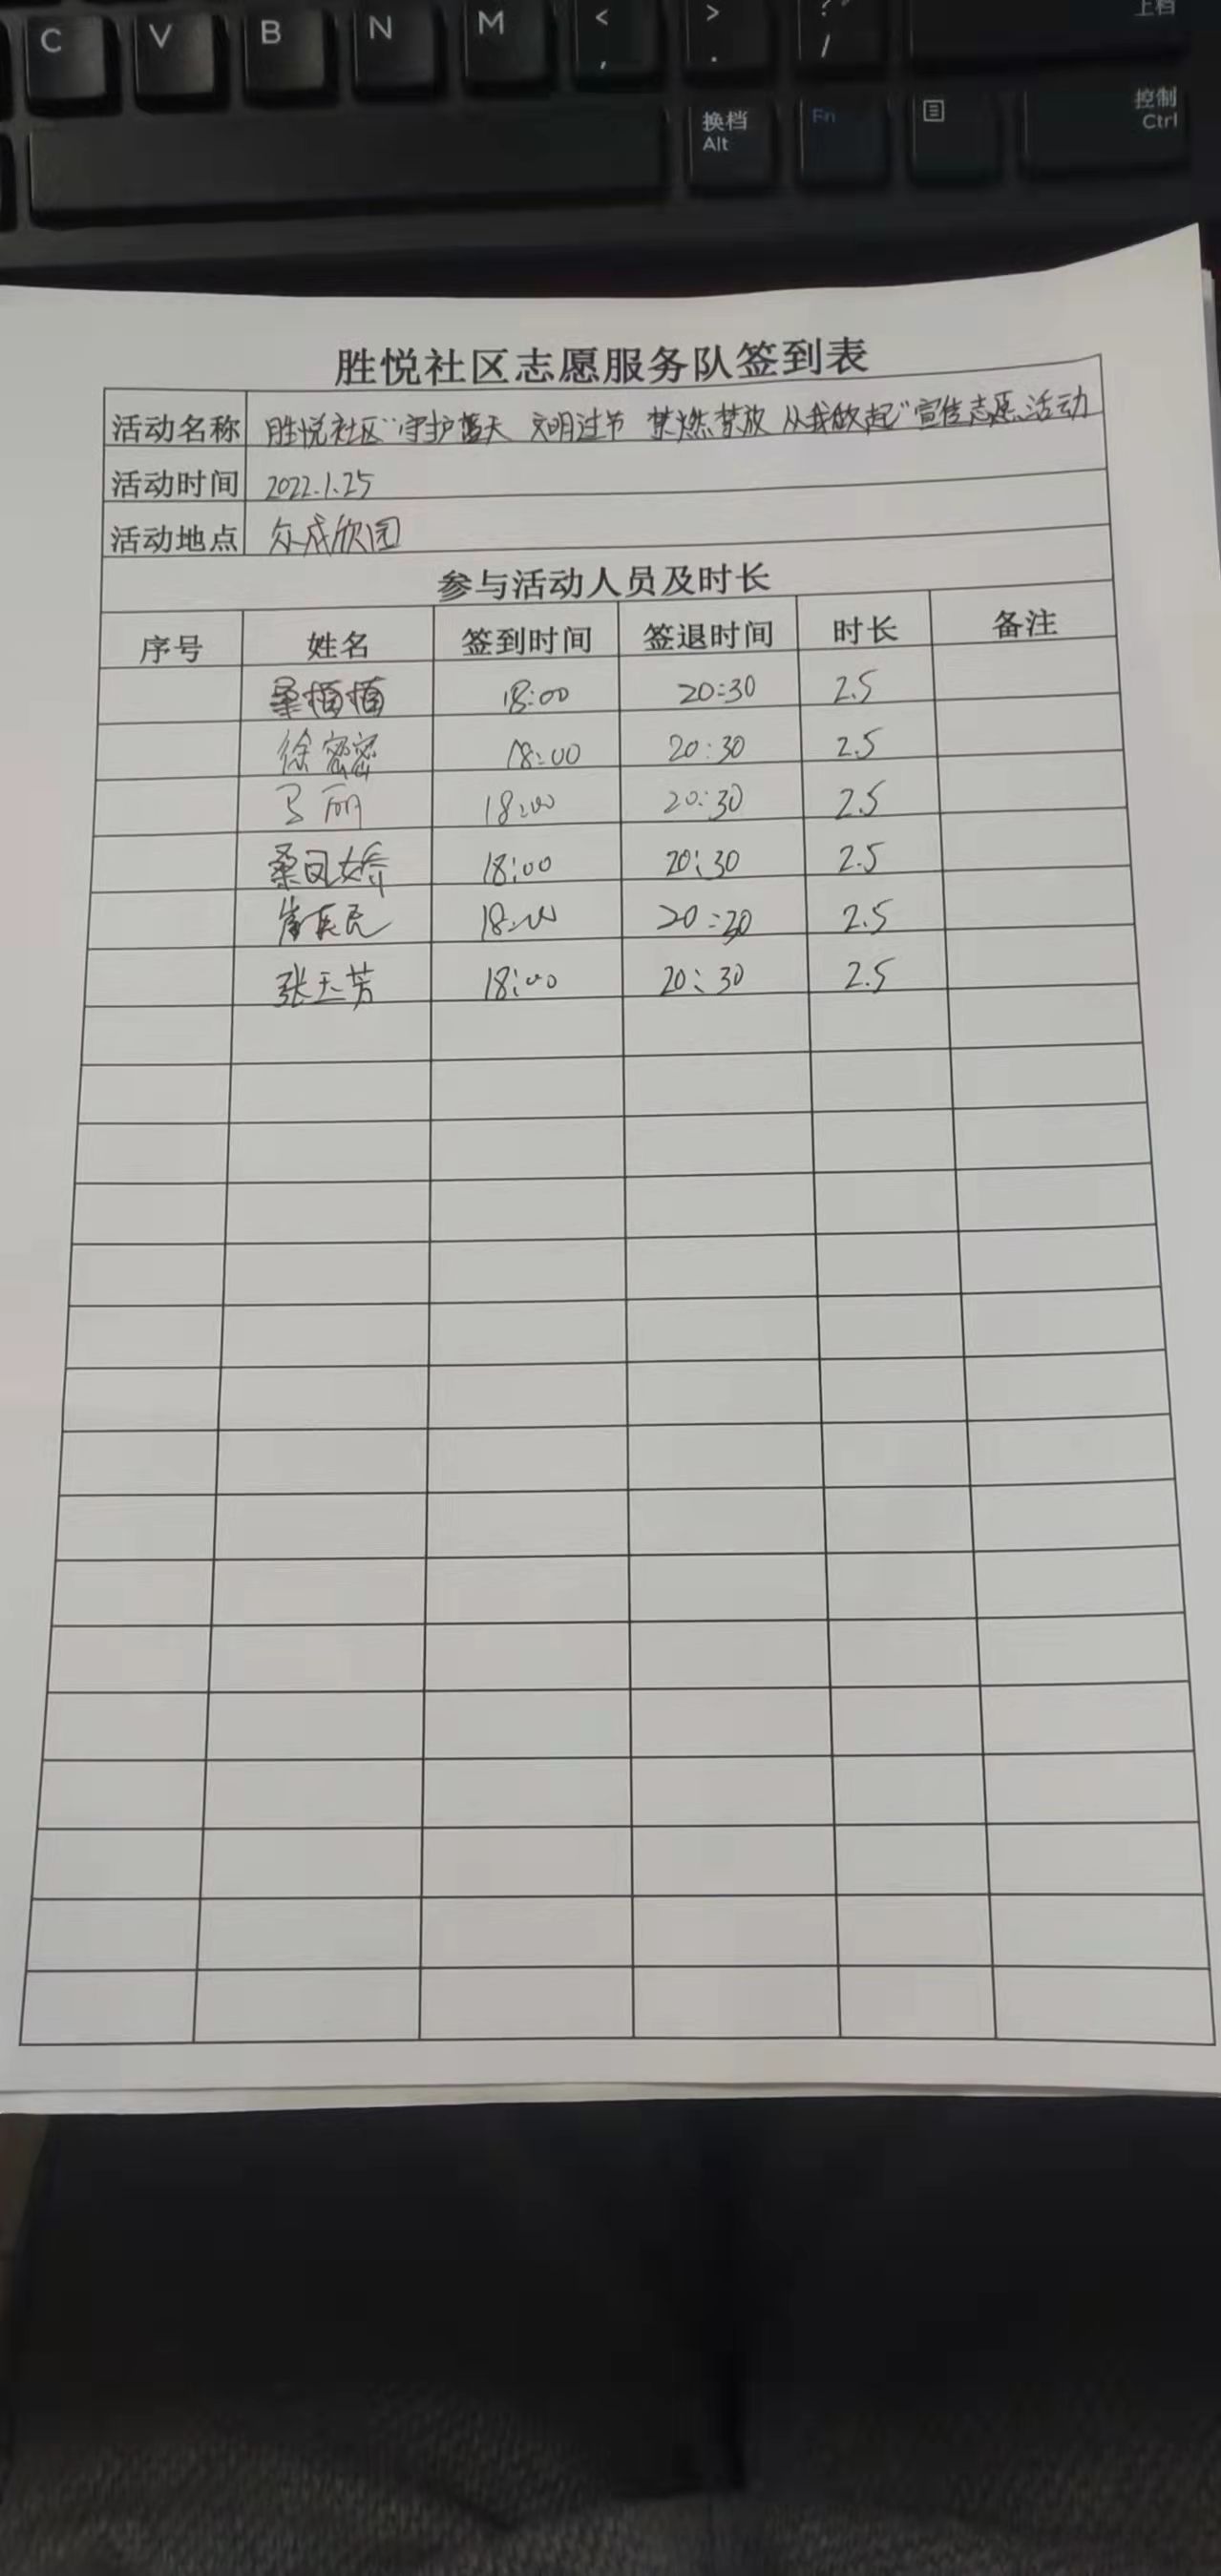 上档
C V B N M < , > . ? /
换档 Alt Fn 控制 Ctrl
胜悦社区志愿服务队签到表
活动名称 胜悦社区“守护蓝天 文明过节 禁燃禁放 从我做起”宣传志愿活动
活动时间 2022.1.25
活动地点 众成欣园
参与活动人员及时长
序号 姓名 签到时间 签退时间 时长 备注
18:00 20:30 2.5
徐密密 18:00 20:30 2.5
马丽 18:00 20:30 2.5
桑凤娇 18:00 20:30 2.5
18:00 20:30 2.5
张玉芳 18:00 20:30 2.5